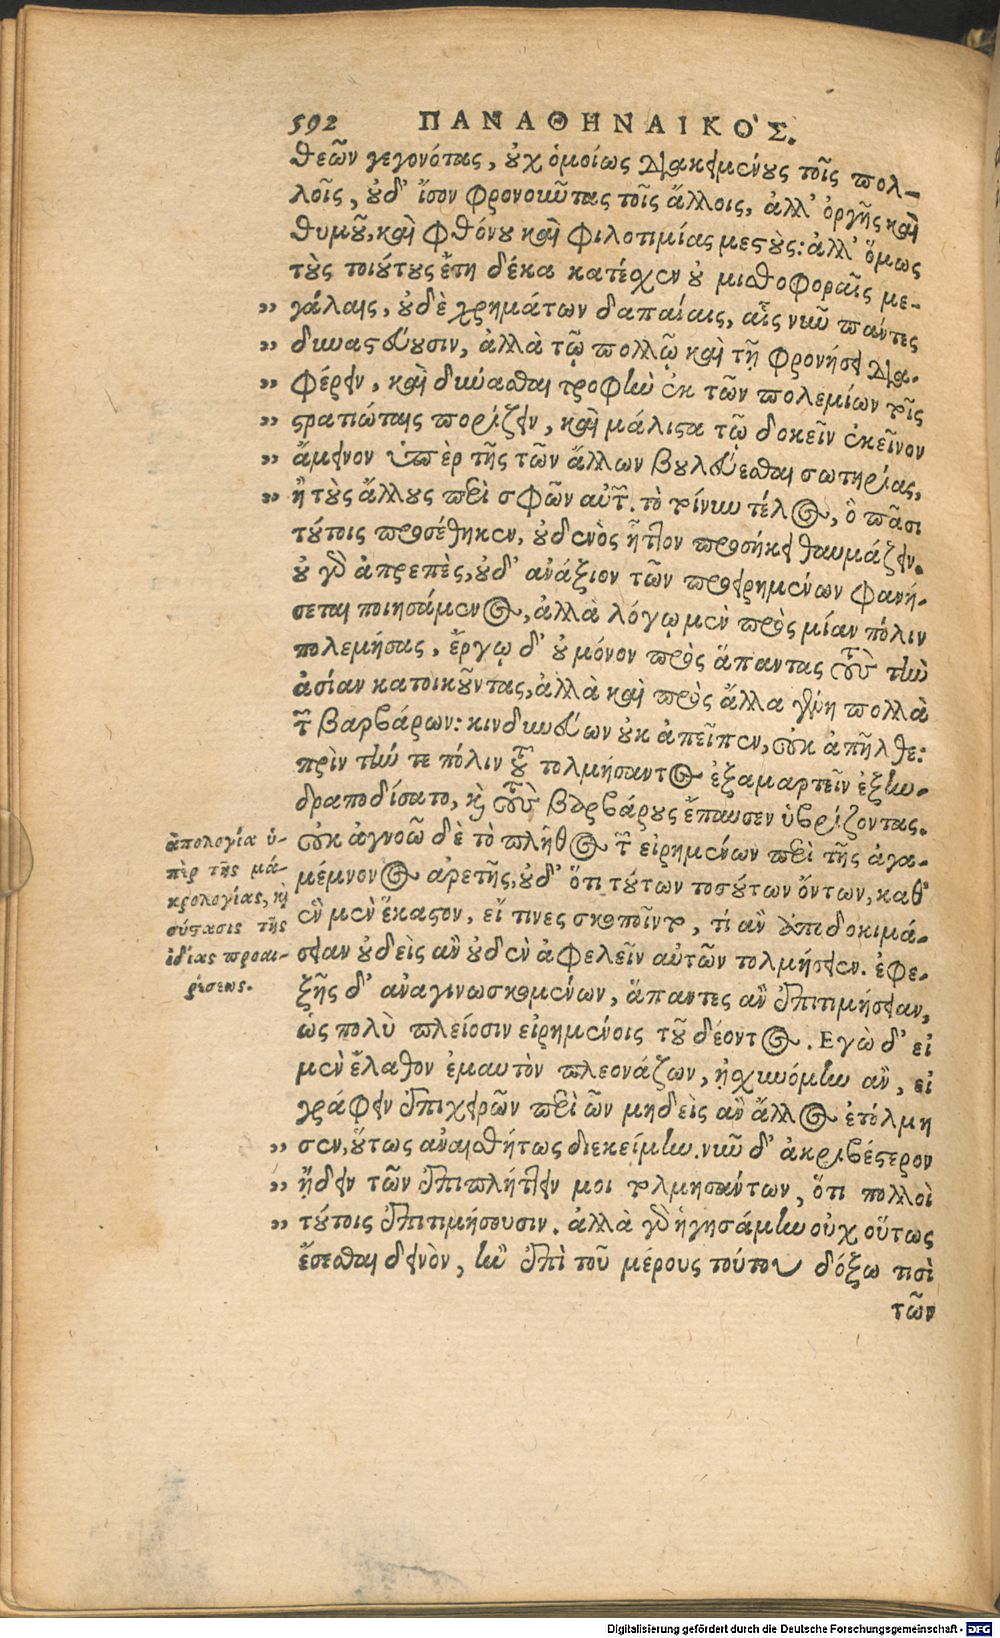 592 ΠΑΝΑΘΗΝΑΙΚΟΣ.
θεῶν γεγονότας, οὐχ ὁμοίως διακειμένους τοῖς πολ-
λοῖς, οὐδ' ἴσον φρονοῦντας τοῖς ἄλλοις, ἀλλ' ὀργῆς καὶ
θυμοῦ, καὶ φθόνου καὶ φιλοτιμίας μεστούς: ἀλλ' ὅμως
τοὺς τοιούτους ἔτη δέκα κατέσχεν οὐ μισθοφοραῖς με-
” γάλαις, οὐδὲ χρημάτων δαπάναις, αἷς νῦν πάντες
” δυναστεύουσιν, ἀλλὰ τῷ πολλῷ καὶ τῇ φρονήσει δια-
” φέρειν, καὶ δύνασθαι τροφὴν ἐκ τῶν πολεμίων τοῖς
” στρατιώταις πορίζειν, καὶ μάλιστα τῷ δοκεῖν ἐκεῖνον
” ἄμεινον ὑπὲρ τῆς τῶν ἄλλων βουλεύεσθαι σωτηρίας,
” ἢ τοὺς ἄλλους περὶ σφῶν αὐτῶν. τὸ τοίνυν τέλος, ὃ πᾶσι
τούτοις προσέθηκεν, οὐδενὸς ἧττον προσήκει θαυμάζειν.
οὐ γὰρ ἀπρεπὲς, οὐδ' ἀνάξιον τῶν προειρημένων φανή-
σεται ποιησάμενος, ἀλλὰ λόγῳ μὲν πρὸς μίαν πόλιν
πολεμήσας, ἔργῳ δ' οὐ μόνον πρὸς ἅπαντας τοὺς τὴν
ἀσίαν κατοικοῦντας, ἀλλὰ καὶ πρὸς ἄλλα γένη πολλὰ
τῶν βαρβάρων: κινδυνεύων οὐκ ἀπεῖπεν, οὐκ ἀπῆλθε:
πρὶν τήν τε πόλιν τοῦ τολμήσαντος ἐξαμαρτεῖν ἐξην-
δραποδίσατο, καὶ τοὺς βαρβάρους ἔπαυσεν ὑβρίζοντας.
ἀπολογία ὑ-
πὲρ τῆς μα-
κρολογίας, καὶ
σύστασις τῆς
ἰδίας προαι-
ρέσεως.
οὐκ ἀγνοῶ δὲ τὸ πλῆθος τῶν εἰρημένων περὶ τῆς ἀγα-
μέμνονος ἀρετῆς, οὐδ' ὅτι τούτων τοσούτων ὄντων, καθ'
ἓν μὲν ἕκαστον, εἴ τινες σκοποῖντο, τί ἂν ἀποδοκιμά-
σειαν οὐδεὶς ἂν οὐδὲν ἀφελεῖν αὐτῶν τολμήσειεν. ἐφε-
ξῆς δ' ἀναγινωσκομένων, ἅπαντες ἂν ἐπιτιμήσειαν,
ὡς πολὺ πλείοσιν εἰρημένοις τοῦ δέοντος. Εγὼ δ' εἰ
μὲν ἔλαθον ἐμαυτὸν πλεονάζων, ᾐσχυνόμην ἂν, εἰ
γράφειν ἐπιχειρῶν περὶ ὧν μηδεὶς ἂν ἄλλος ἐτόλμη
” σεν, οὕτως ἀναισθήτως διεκείμην. νῦν δ' ἀκριβέστερον
” ᾔδειν τῶν ἐπιπλήττειν μοι τολμησάντων, ὅτι πολλοὶ
” τούτοις ἐπιτιμήσουσιν. ἀλλὰ γὰρ ἡγησάμην οὐχ οὕτως
ἔσεσθαι δεινὸν, ἢν ἐπὶ τοῦ μέρους τούτου δόξω τισὶ
τῶν
Digitalisierung gefördert durch die Deutsche Forschungsgemeinschaft - DFG